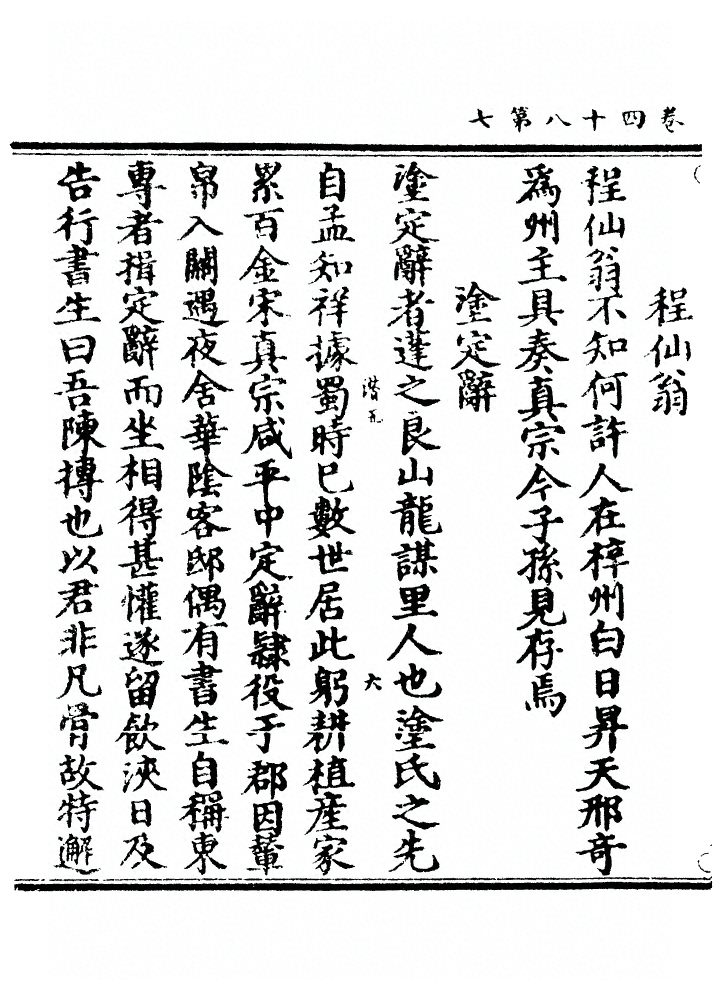 卷四十八第七
程仙翁
程仙翁不知何許人在梓州白日昇天邢奇
為州主具奏真宗今子孫見存焉
塗定辭
塗定辭者達之良山龍謀里人也塗氏之先
潜五
六
自孟知祥據蜀時已數世居此躬耕植產家
累百金宋真宗咸平中定辭隸役于郡因輦
帛入關遇夜舍華陰客邸偶有書生自稱東
專者揖定辭而坐相得甚懽遂留飲浹日及
告行書生曰吾陳摶也以君非凡骨故特邂